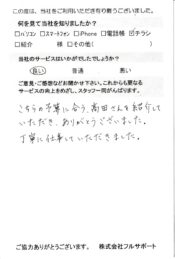 この度は、当社をご利用いただき有り難うございました。
何を見て当社を知りましたか？
□パソコン □スマートフォン □iPhone □電話帳 ☑チラシ
□紹介 様 □その他( )
当社のサービスはいかがでしたでしょうか？
良い 普通 悪い
ご意見・ご感想などお聞かせ下さい。これからも更なる
サービスの向上をめざし、スタッフ一同がんばります。
こちらの予算に合う、高田さんを紹介して
いただき、ありがとうございました。
丁寧に仕事していただきました。
ご協力ありがとうございます。 株式会社フルサポート